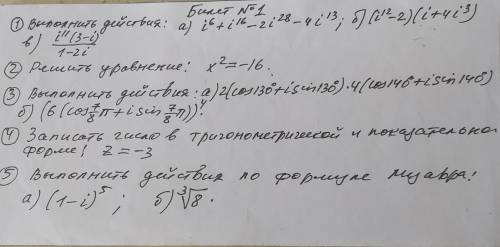 Билет №1
① Выполнить действия: а) i⁶+i¹⁶-2i²⁸-4i¹³; б) (i¹²-2)(i+4i³)
в) (i¹¹(3-i))/(1-2i)
② Решить уравнение: x²=-16.
③ Выполнить действия: а) 2(cos130°+isin130°)·4(cos140°+isin140°)
б) (6(cos 7/8 π+isin 7/8 π))⁴.
④ Записать число в тригонометрической и показательной
форме! z=-3
⑤ Выполнить действия по формуле Муавра!
а) (1-i)⁵; б) ³√8.